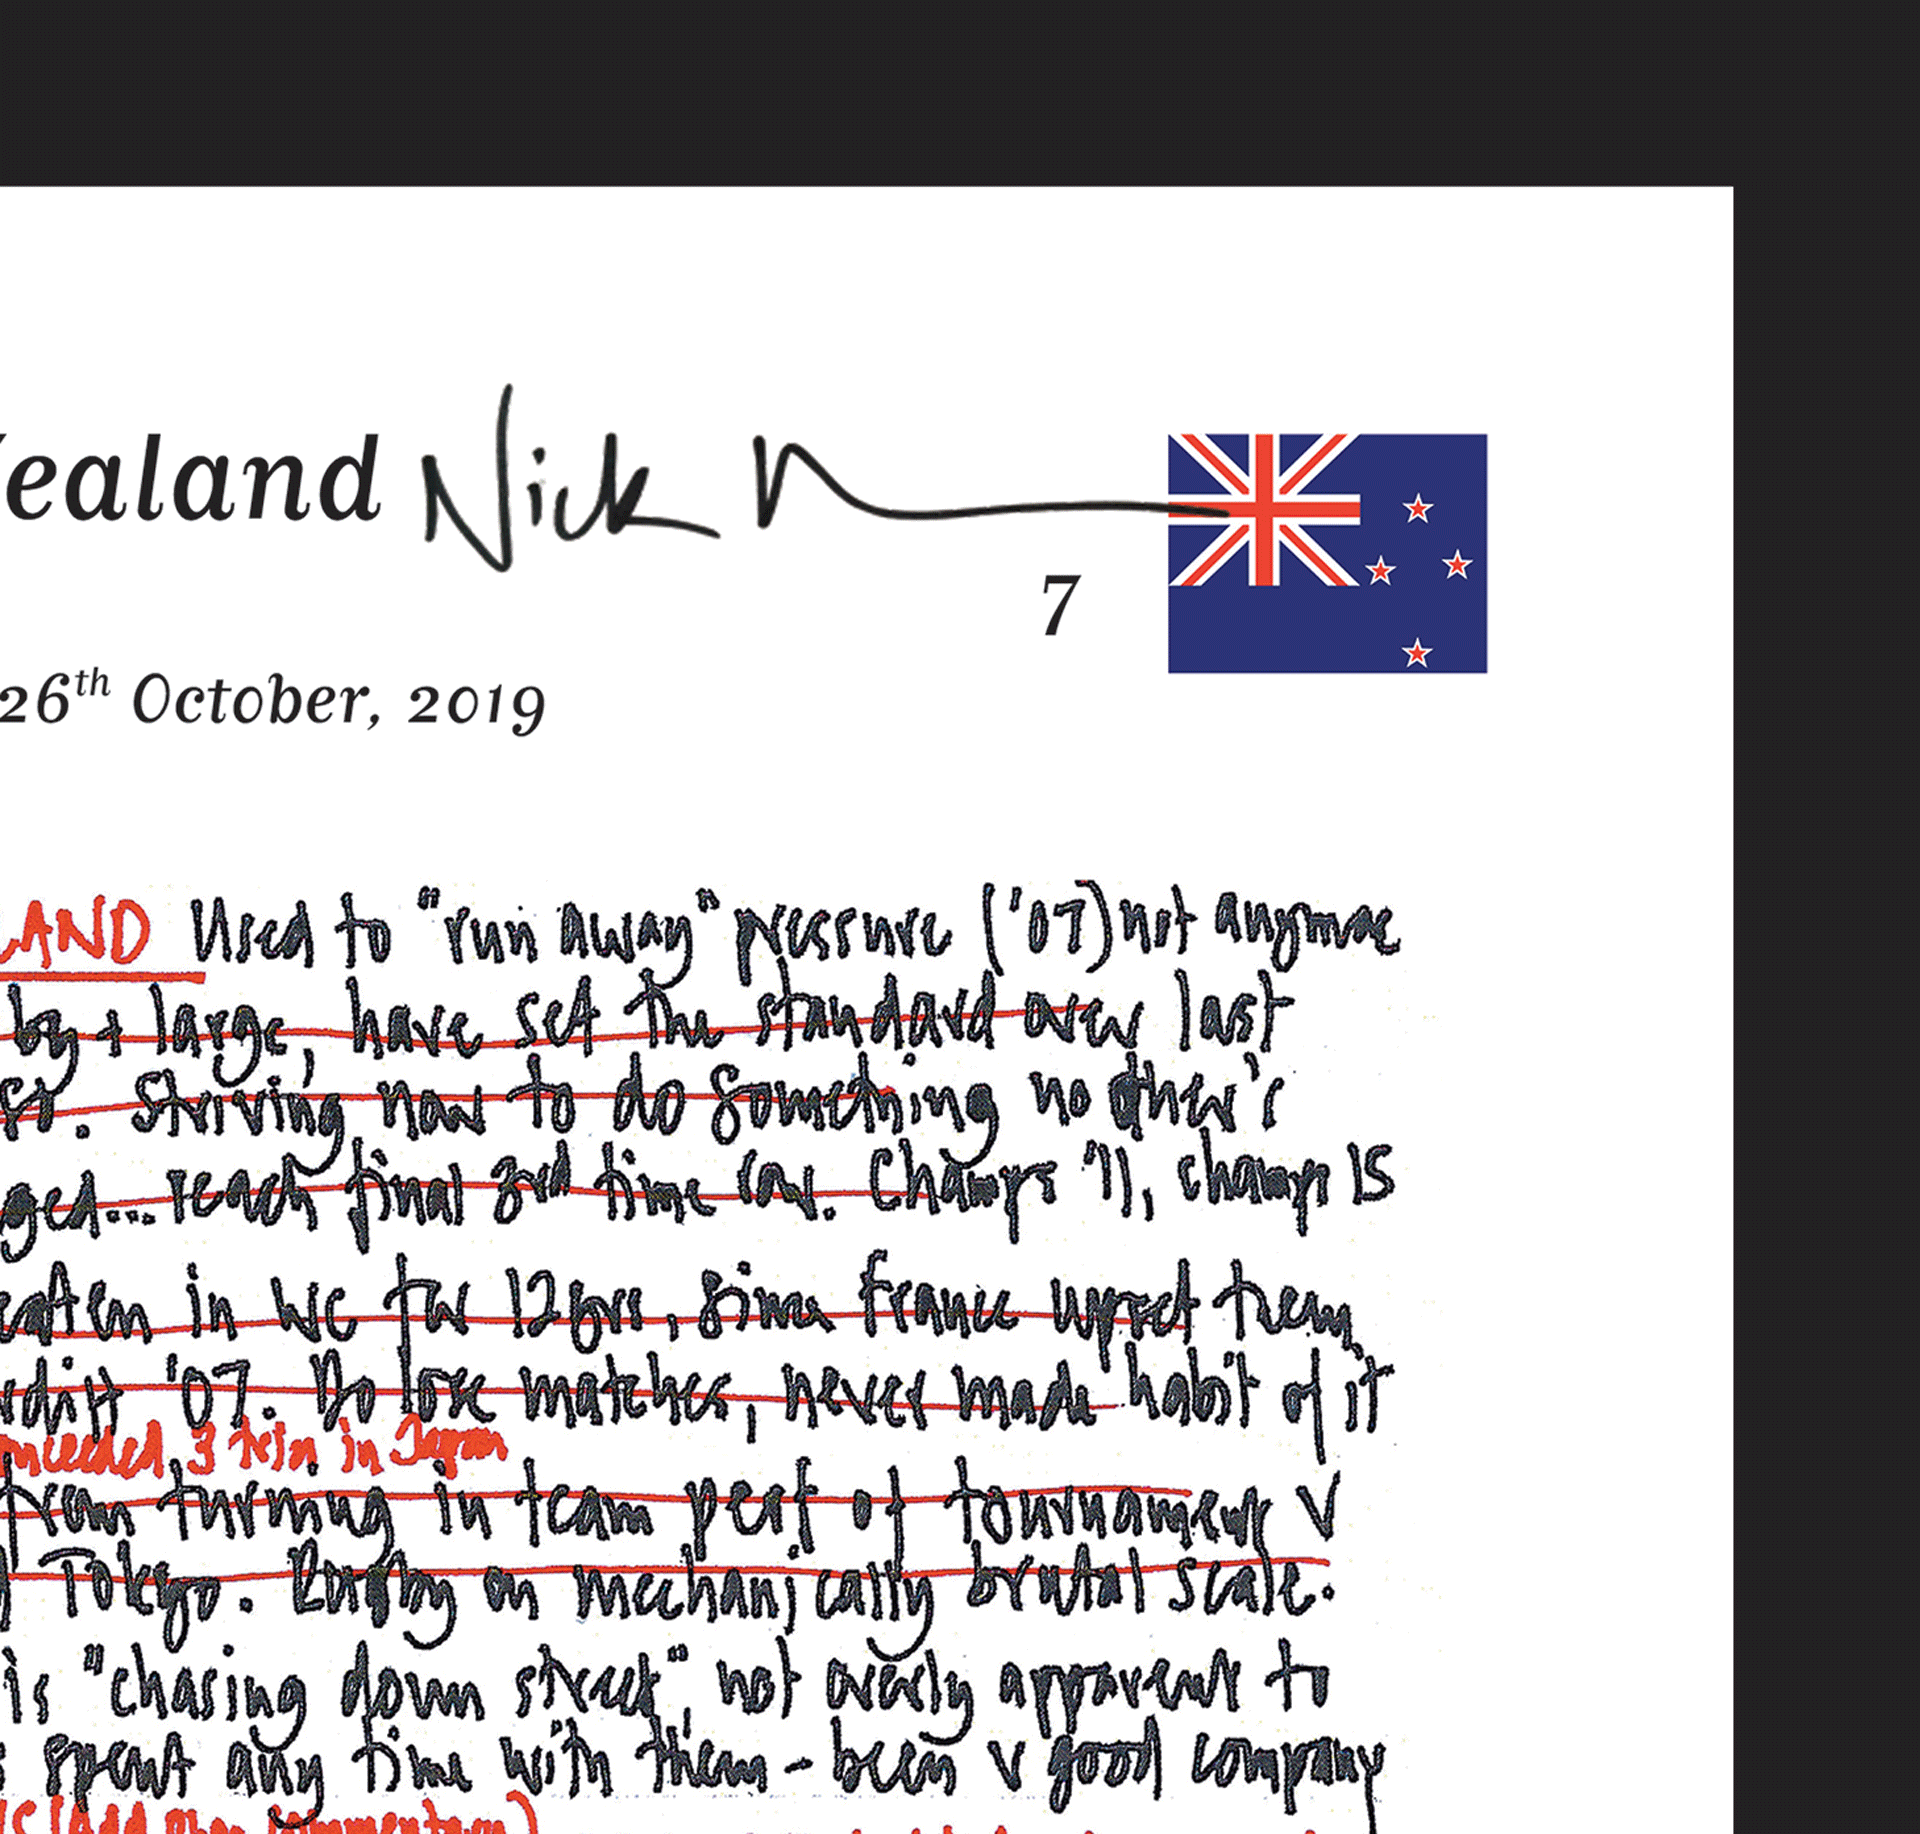 Zealand Nick
7
26th October, 2019
LAND Used to "run away" pressure ('07) not anymore
by + large, have set the standard over last
Striving now to do something no other's
reach final 3rd time row. Champs '11, champs 15
in WC for 12yrs, since France upset them,
'07. Do lose matches, never made habit of it
3 tries in Japan
turning in team perf of tournament v
Tokyo. Rugby on mechanically brutal scale.
is "chasing down street" not overly apparent to
spent any time with them - been v good company